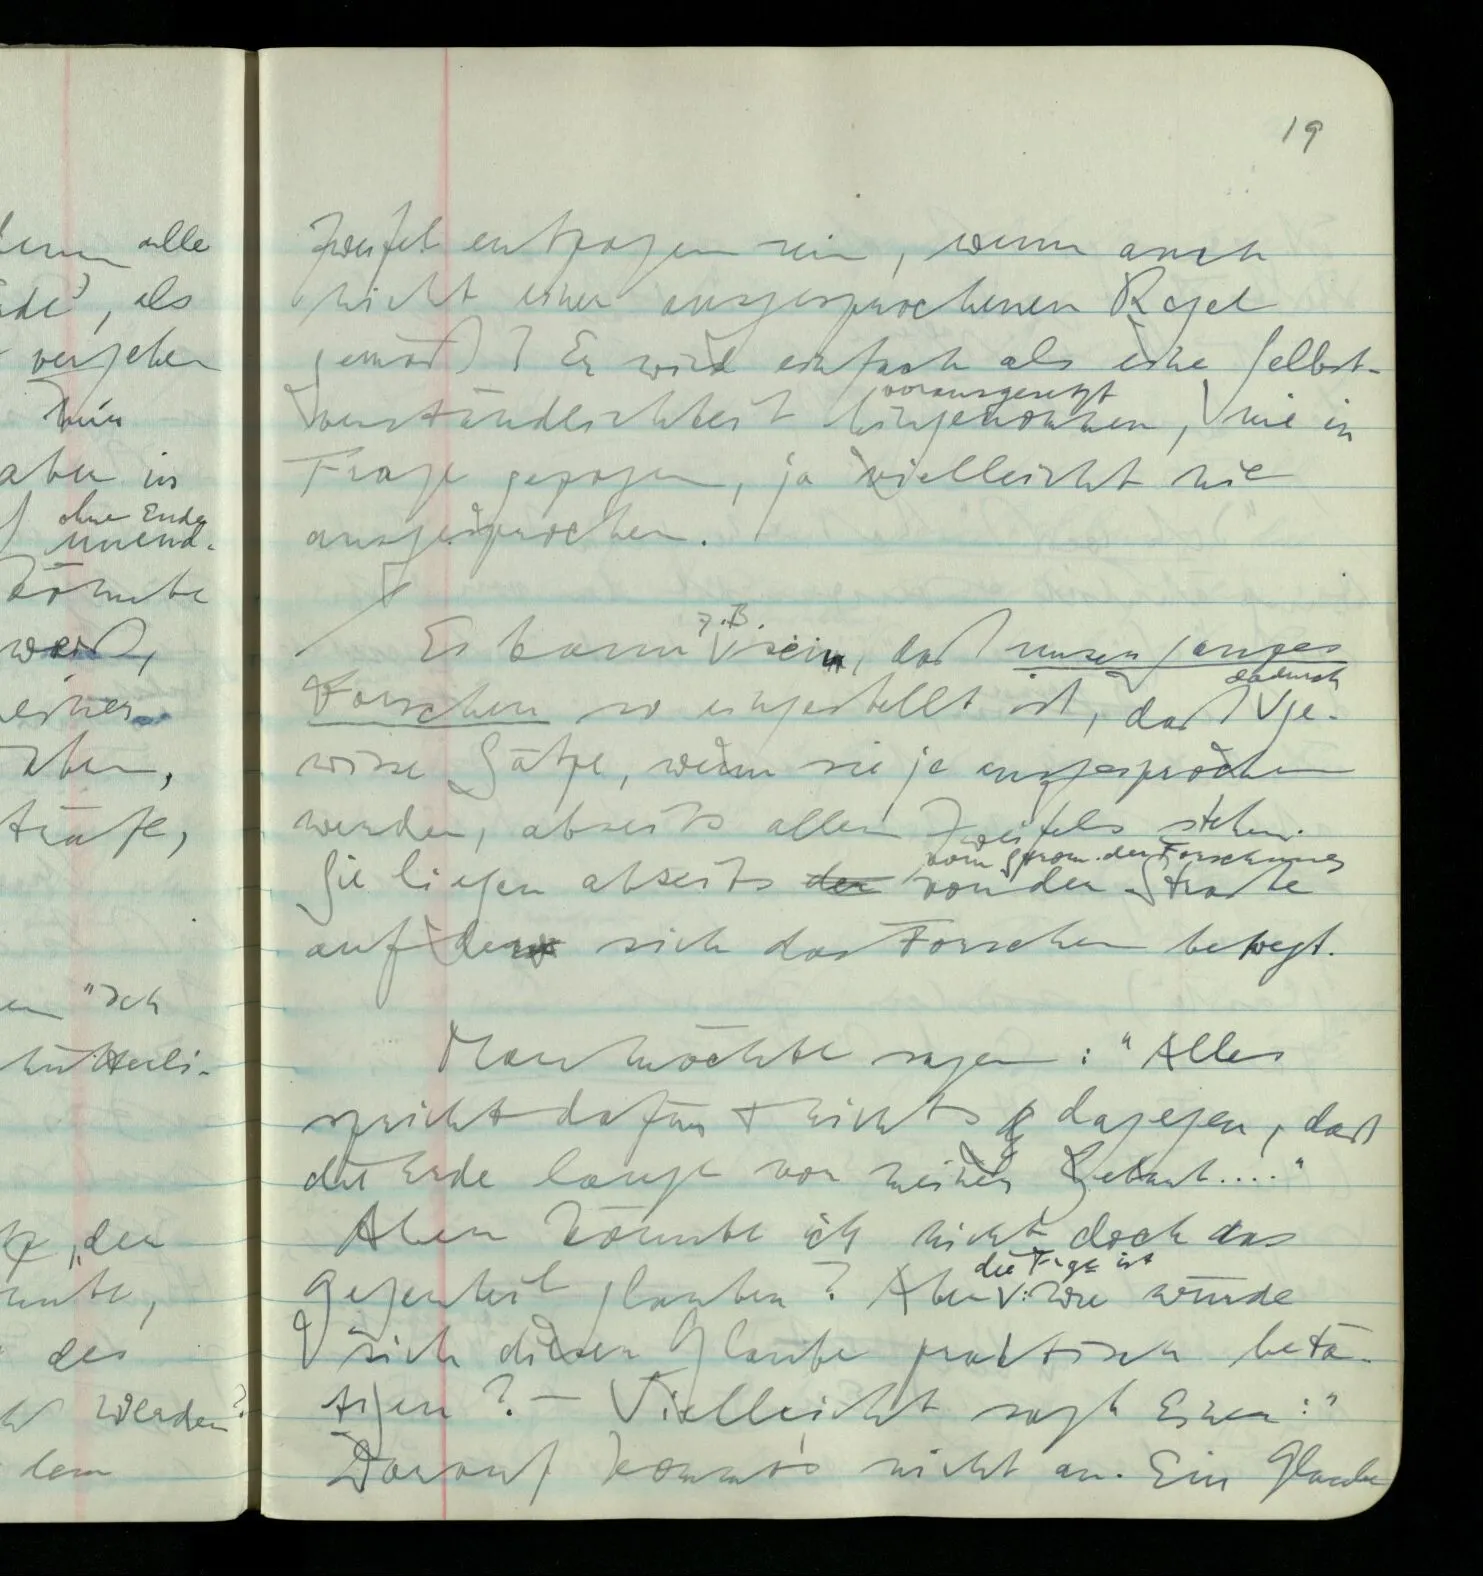 dern alle
als
versehen
hin
aber in
ohne Ende
unend-
könnte
weiß,
eines
aben,
träfe,
en "Ich
hütterli-
, der
unte,
des
werden?
dem
19
Zweifel entzogen sein, wenn auch
nicht einer ausgesprochenen Regel
gemäß? Er wird einfach als eine Selbst-
vorausgesetzt
verständlichkeit hingenommen, nie in
Frage gezogen, ja vielleicht nie
ausgesprochen.
Es kann z.B. sein, daß unser ganzes
dadurch
Forschen so eingestellt ist, daß ge-
wisse Sätze, wenn sie je ausgesprochen
werden, abseits allen Zweifels stehen.
vom Strom der Forschung
Sie liegen abseits der von der Straße
auf der sich das Forschen bewegt.
Man möchte sagen: "Alles
spricht dafür + nichts dagegen, daß
die Erde lange vor meiner Geburt...."
Aber könnte ich nicht doch das
die Frge ist
Gegenteil glauben? Aber: Wie würde
sich dieser Glaube praktisch betä-
tigen? — Vielleicht sagt Einer: "
Darauf kommt's nicht an. Ein Glaube